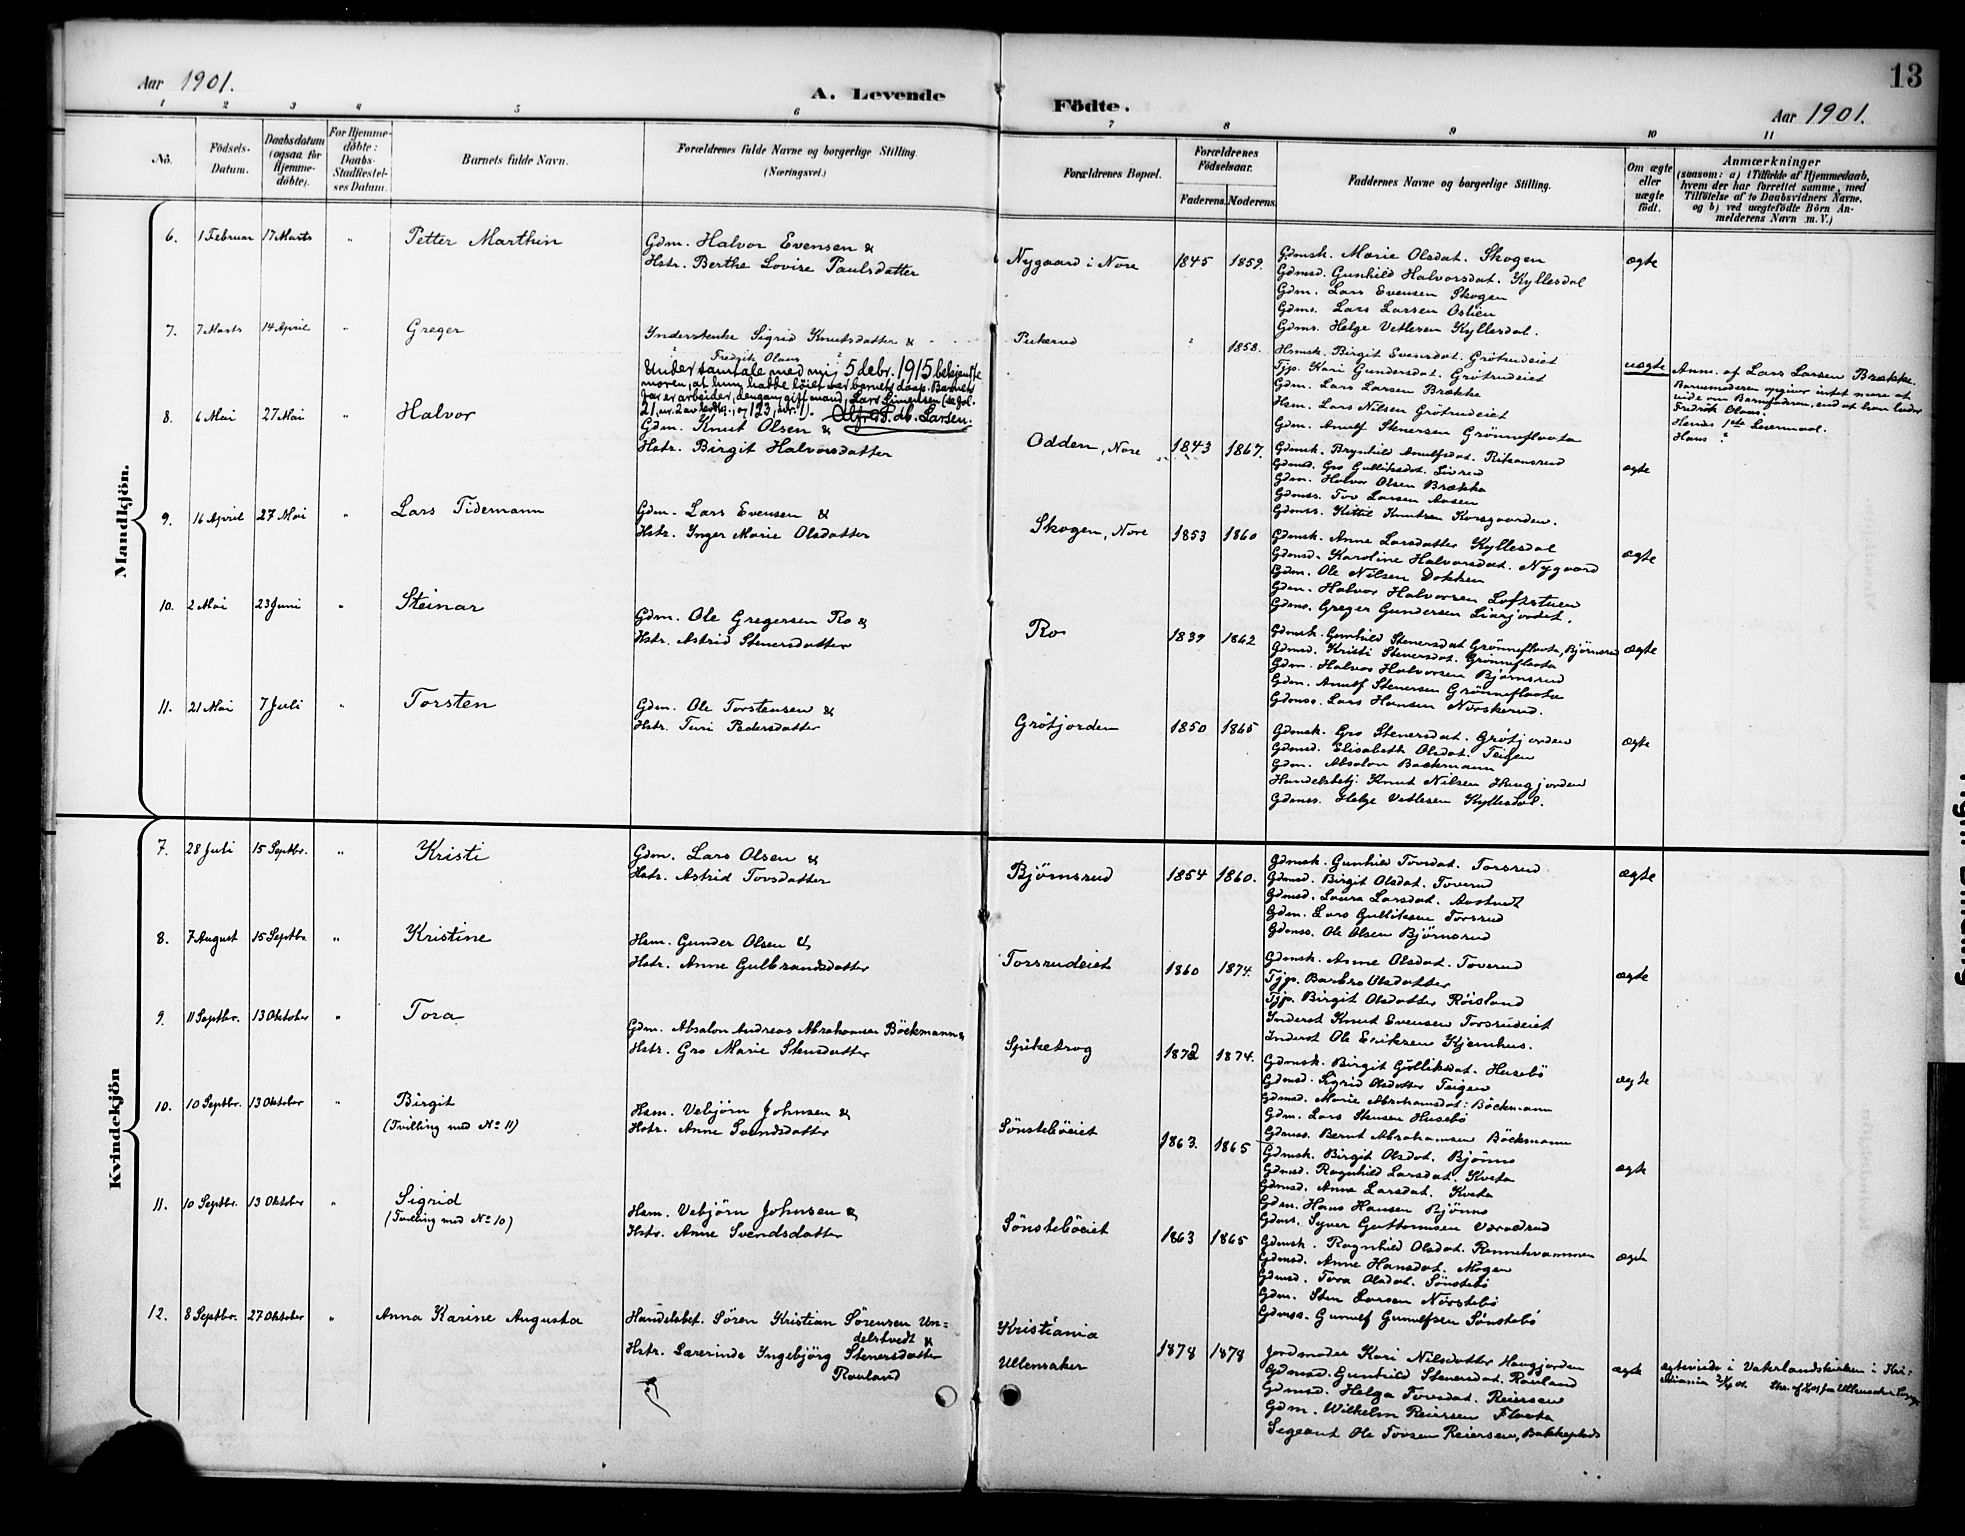 Aar 1901.
A. Levende Födte.
Aar 1901.
13
1 2 3 4 5 6 7 8 9 10 11
No.
Födsels-Datum.
Daabsdatum (ogsaa for Hjemme-döbte).
For Hjemme-döbte: Daabs-Stadfæstel-ses Datum.
Barnets fulde Navn.
Forældrenes fulde Navne og borgerlige Stilling. (Næringsvei.)
Forældrenes Bopæl.
Forældrenes Födselsaar.
Faderens. Moderens.
Faddernes Navne og borgerlige Stilling.
Om ægte eller uægte födt.
Anmærkninger (saasom: a) i Tilfælde af Hjemmedaab, hvem der har forrettet samme, med Tilföielse af to Daabsvidners Navne, og b) ved uægtefödte Börn Anmelderens Navn m. V.)
Mandkjön.
6. 1 Februar 17 Marts " Petter Marthin
Gdm. Halvor Evensen &
Hstr. Berthe Lovise Paulsdatter
Nygaard i Nore 1845 1859.
Gdmsk. Marie Olsdat. Skogen
Gdmsd. Gunhild Halvorsdat. Kyllesdal
Gdm. Lars Evensen Skogen
Gdms. Lars Larsen Oslien
Gdms. Helge Vetlesen Kyllesdal.
ægte
7. 7 Marts 14 April " Greger
Inderstenke Sigrid Knutsdatter &
Fredrik Olaus
Under samtale med mig 5 debr. 1915 bekjendte
moren, at hun hadde löiet ved barnets daap. Barnets
far er arbeider, dengang gift mand, Lars Simensen
Alfred Larsen.
Pukerud " 1858.
Hsmsk. Birgit Evensdat. Grötrudeiet
Tjp. Kari Gundersdat. Grötrudeiet
Gdm. Lars Larsen Brække
Hsm. Lars Nilsen Grötrudeiet
Gdm. Arnulf Stenersen Grönneflaata
uægte
Anm. af Lars Larsen Brække.
Barnemoderen opgiver intet mere at
vide om Barnefaderen, end at han heder
Fredrik Olaus.
Hendes 1ste Leiermaal.
Hans "
8. 6 Mai 27 Mai " Halvor
Gdm. Knut Olsen &
Hstr. Birgit Halvorsdatter
Odden, Nore 1843 1867.
Gdmsk. Brynhild Arnulfsdat. Rikansrud
Gdmsd. Gro Gulliksdat. Livrud
Gdm. Halvor Olsen Brække
Gdmss. Tov Larsen Aasen
Gdmss. Kittil Knutsen Korsgaarden.
ægte
9. 16 April 27 Mai " Lars Tidemann
Gdm. Lars Evensen &
Hstr. Inger Marie Olsdatter
Skogen, Nore 1853 1860
Gdmsk. Anne Larsdatter Kyllesdal
Gdmsd. Karoline Halvorsdat. Nygaard
Gdm. Ole Nilsen Dokken
Gdm. Halvor Halvorsen Loftstuen
Gdms. Greger Gundersen Liarjordet.
ægte
10. 2 Mai 23 Juni " Steinar
Gdm. Ole Gregersen Ro &
Hstr. Astrid Stenersdatter
Ro 1839 1862
Gdmsk. Gunhild Stenersdat Grönneflaata, Björnsrud
Gdmsd. Kristi Stenersdat. Grönneflaata
Gdm. Halvor Halvorsen Björnsrud
Gdm. Arnulf Stenersen Grönneflaata
Gdmss. Lars Hansen Norskerud.
ægte
11. 21 Mai 7 Juli " Torsten
Gdm. Ole Torstensen &
Hstr. Turi Pedersdatter
Grötjorden 1850 1865
Gdmsk. Gro Stenersdat. Grötjorden
Gdmsd. Elisabeth Olsdat. Teigen
Gdm. Absalon Bøckmann
Handelsbetj. Knut Nilsen Haugjorden
Gdmss. Helge Vetlesen Kyllesdal.
ægte
Kvindekjön
7. 28 Juli 15 Septbr. " Kristi
Gdm. Lars Olsen &
Hstr. Astrid Tovsdatter
Björnsrud 1854 1860.
Gdmsk. Gunhild Tovsdat. Torsrud
Gdmsd. Birgit Olsdat. Toverud
Gdmsd. Laura Larsdat. Aastvedt
Gdm. Lars Gulliksen Torsrud
Gdmss. Ole Olsen Björnsrud
ægte
8. 7 August 15 Septbr. " Kristine
Hsm. Gunder Olsen &
Hstr. Anne Gulbrandsdatter
Torsrudeiet 1860 1874.
Gdmsk. Anne Olsdat. Toverud
Tjp. Barbro Olsdatter
Tjp. Birgit Olsdatter Röisland
Inderst Knut Evensen Torsrudeiet
Inderst Ole Eriksen Kjemhus.
ægte
9. 11 Septbr. 13 Oktober " Tora
Gdm. Absalon Andreas Abrahamsen Böckmann &
Hstr. Gro Marie Stensdatter
Spiketrog 1872 1874.
Gdmsk. Birgit Gulliksdat. Husebö
Gdmsd. Sigrid Olsdatter Teigen
Gdmsd. Marie Abrahamsdat: Böckmann
Gdm. Lars Stensen Husebö
Gdmss. Bernt Abrahamsen Böckmann
ægte
10. 10 Septbr. 13 Oktober " Birgit
(Tvilling med No 11)
Hsm. Vebjörn Johnsen &
Hstr. Anne Svendsdatter
Sönsteböeiet 1863. 1865
Gdmsk. Birgit Olsdat. Bjönnö
Gdmsd. Ragnhild Larsdat. Kveta
Gdmsd. Anne Larsdat. Kveta
Gdm. Hans Hansen Bjönnö
Gdms. Syver Guttormsen Værvelsrud
ægte
11. 10 Septbr. 13 Oktober " Sigrid
(Tvilling med No 10)
Hsm. Vebjörn Johnsen &
Hstr. Anne Svendsdatter
Sönsteböeiet 1863 1865
Gdmsk. Ragnhild Olsdat. Rennehvammen
Gdmsd. Anne Hansdat. Mogen
Gdmsd. Tora Olsdat. Sönstebö
Gdm. Sten Larsen Norstebö
Gdmss. Gunulf Gunulfsen Sönstebö
ægte
12. 8 Septbr. 27 Oktober " Anna Karine Augusta
Handelsbet. Sören Kristian Sörensen Un=
delstvedt &
Hstr. Lærerinde Ingebjörg Stenersdatter
Rauland
Kristiania
Ullensaker 1878 1878
Jordmoder Kari Nilsdatter Haugjorden
Gdmsd. Gunhild Stenersdat. Rauland
Gdmsd. Helga Tovsdat. Reiersen
Gdm. Wilhelm Reiersen Flaata
Sergeant Ole Tovsen Reiersen, Bakkeplads
ægte
ægteviede i Vaterlandskirken i Kri:
stiania